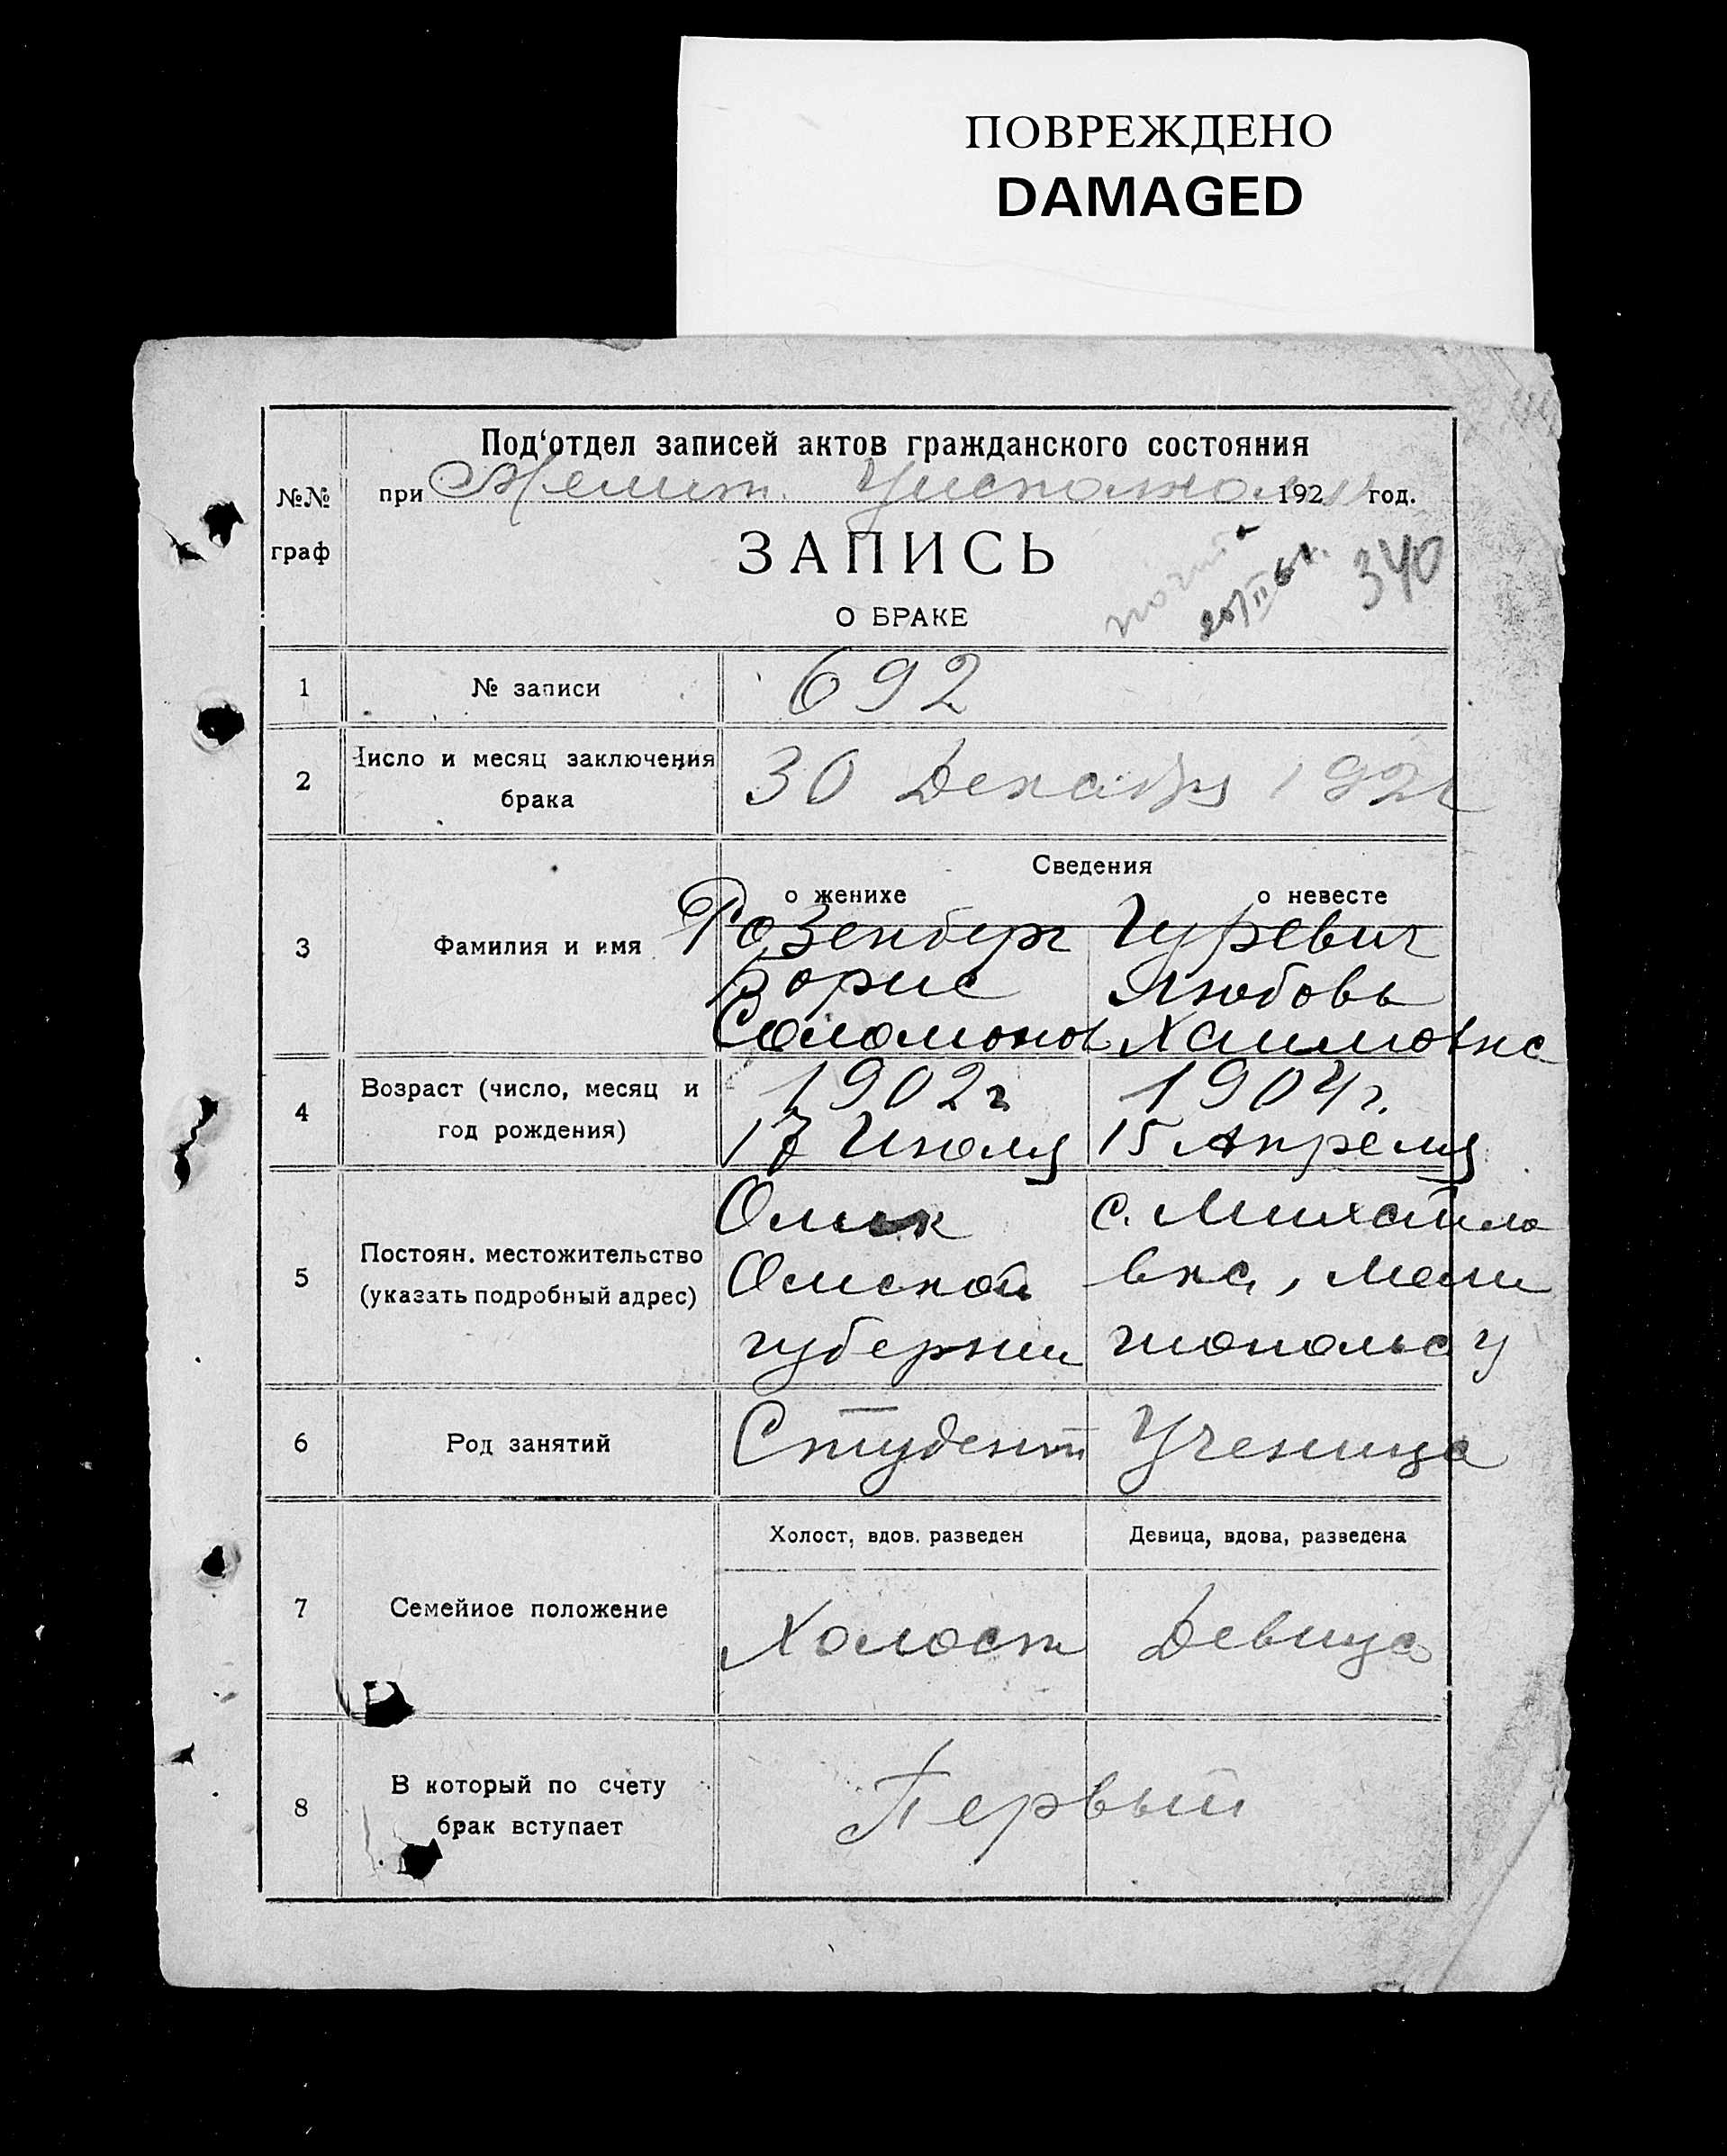 ПОВРЕЖДЕНО
DAMAGED
Под‘отдел записей актов гражданского состояния
№№ граф
при Мелит. Уисполкоме 192 год.
ЗАПИСЬ
О БРАКЕ
340
1 № записи 692
2 Число и месяц заключения брака
30 Декабря 1921
Сведения
о женихе о невесте
3 Фамилия и имя
Розенберг Гуревич
Борис Любовь
Соломонов Хаимовна
4 Возраст (число, месяц и год рождения)
1902г 1904г.
17 Июля 15 Апреля
5 Постоян. местожительство (указать подробный адрес)
Омск с. Михайло
Омской вка, Мели
губернии топольс у
6 Род занятий Студент Ученица
Холост, вдов. разведен Девица, вдова, разведена
7 Семейное положение
Холост Девица
8 В который по счету брак вступает
Первый